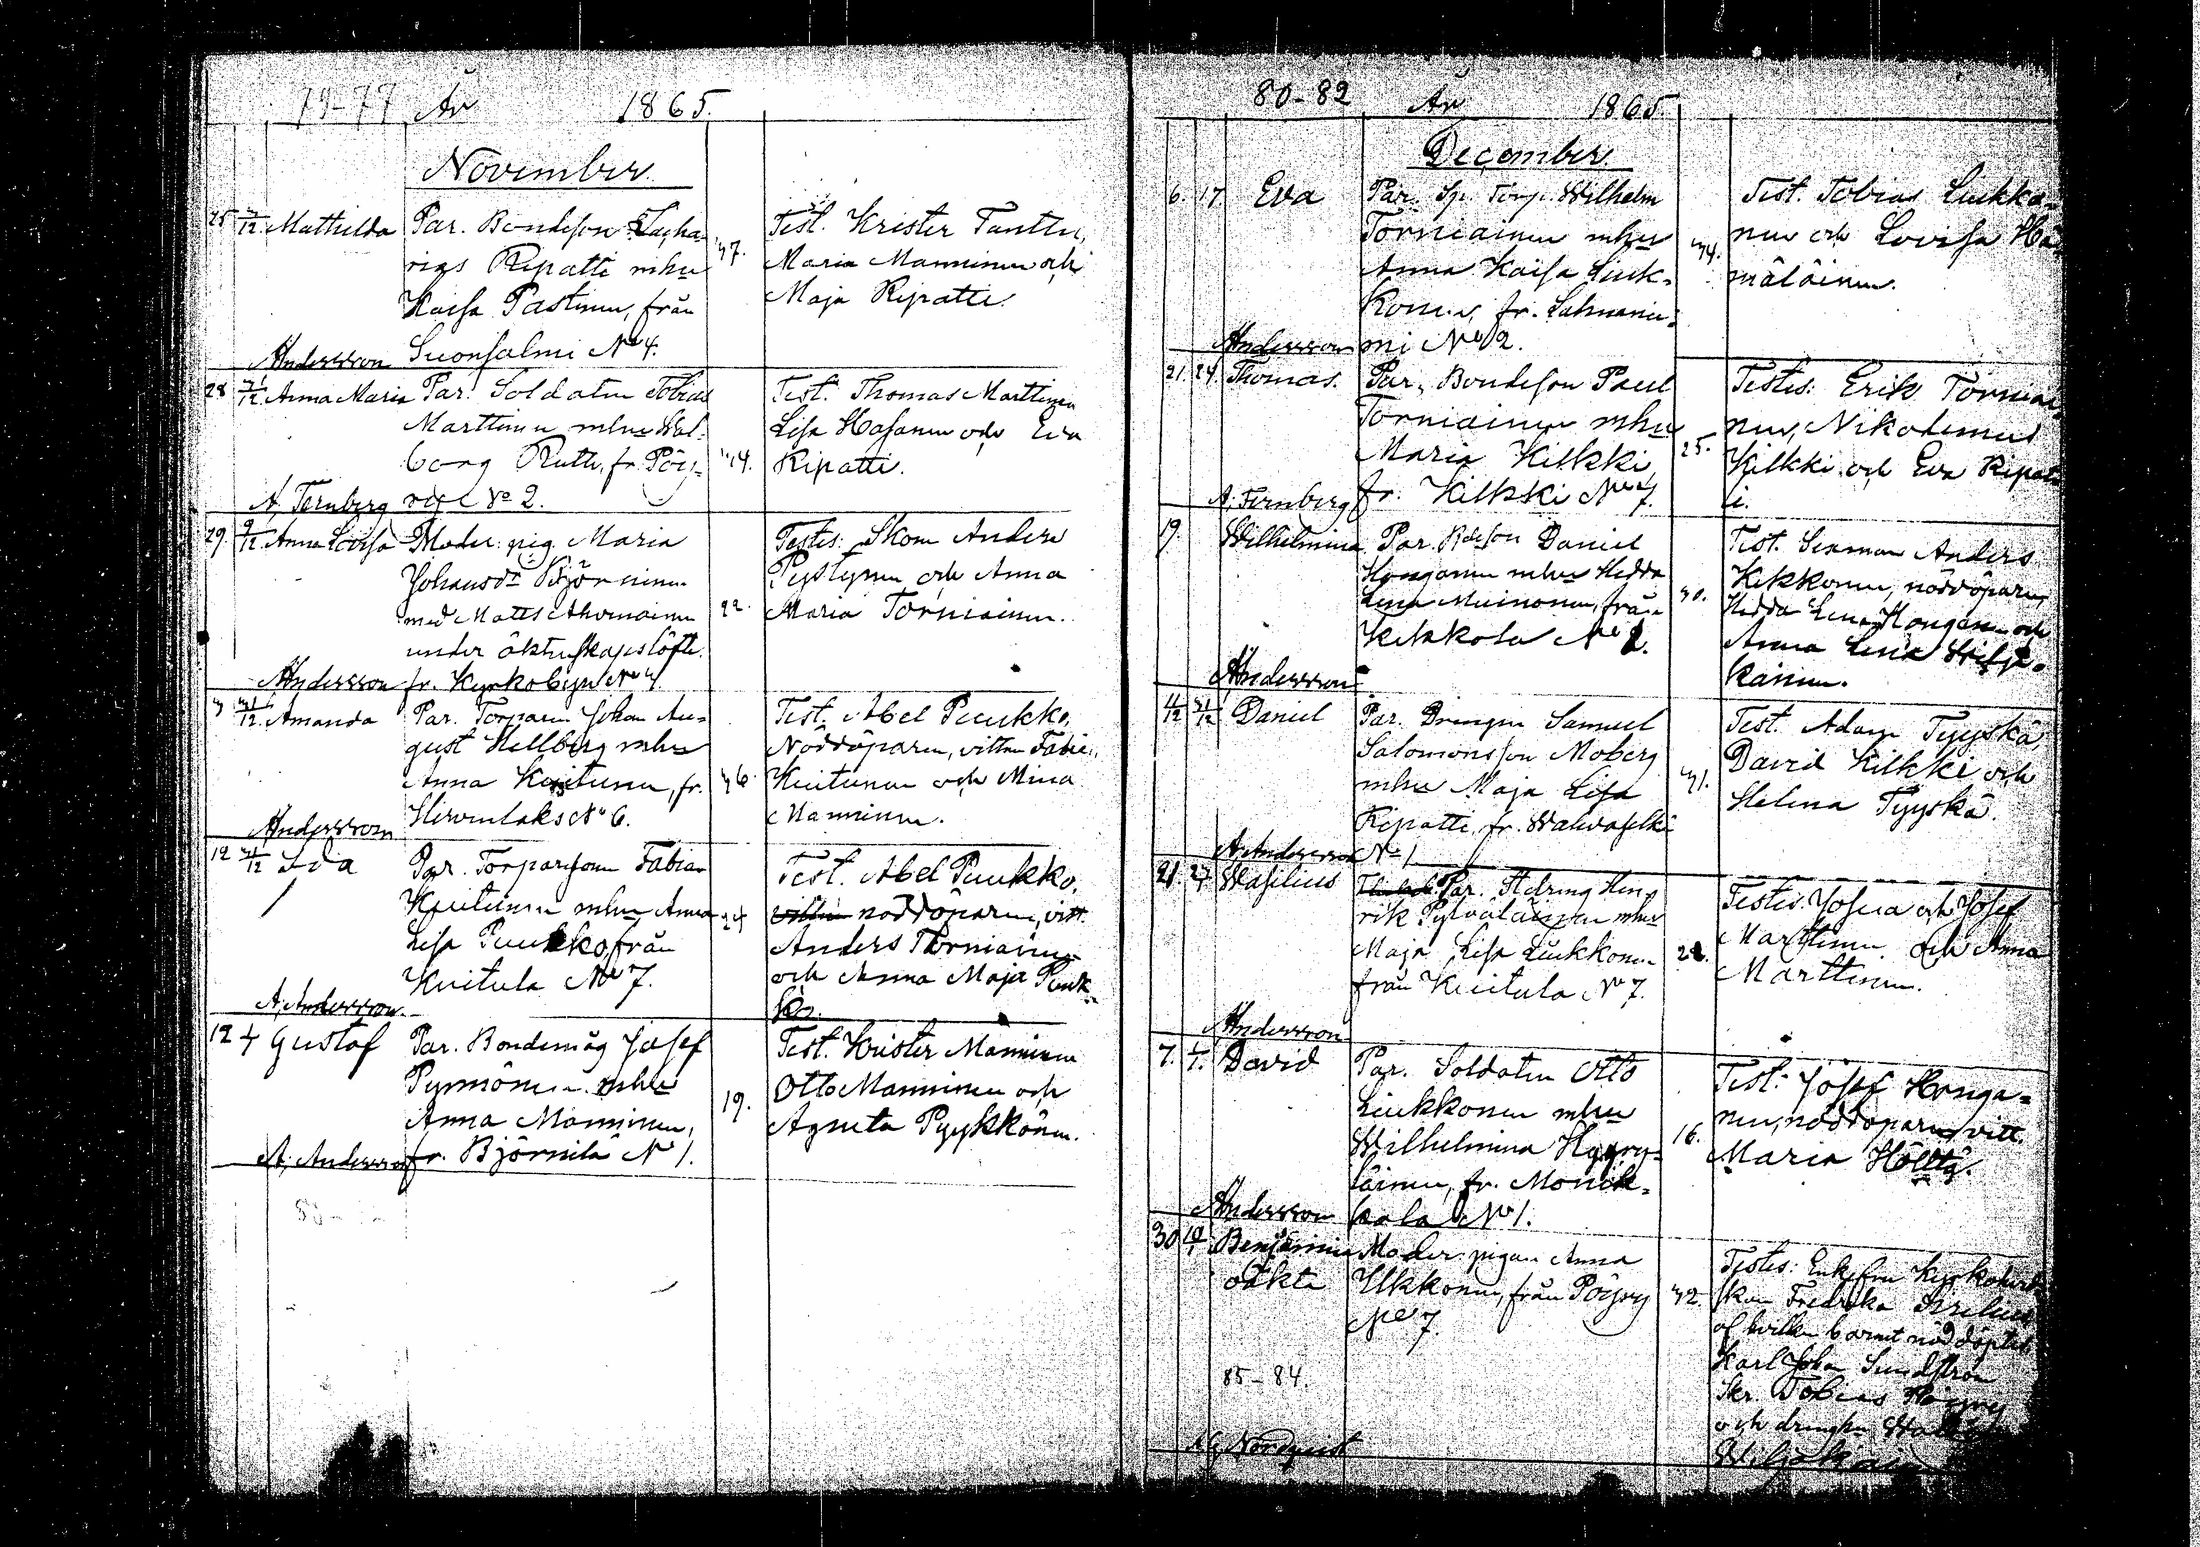 79-77 År 1865.
November.
25 3/12 Mathilda Par. Bondeson Zacha-
rias Ripatti mhu 37.
Kaisa Pastinen, från
Andersson Suonsalmi No 4.
Test. Krister Tanttu,
Maria Manninen och
Maja Ripatti.
28 31/12 Anna Maria Par. Soldaten Tobias
Marttinen mhu Wal-
borg Rutti, fr. Pöy- 44.
A. Fernberg ry No 2.
Test. Thomas Marttinen
Lisa Hasanen och Eva
Ripatti.
29. 9/12 Anna Lovisa Moder: pig. Maria
Johansdr Björninen
med Matts Ahvenainen 22.
under äktenskapslöfte.
Andersson fr. Kyrkobyn No 4.
Testes: Skom Anders
Pyslynen och Anna
Maria Torniainen.
3 31/12 Amanda Par. Torparen Johan Au-
gust Hellberg mhu
Anna Kuitunen, fr. 36.
Andersson Hirvenlaks No 6.
Test. Abel Puukko,
Nöddöparen, vittn Fabian
Kuitunen och Mina
Manninen.
12 31/12 Ida Par. Torparsonen Fabian
Kuitunen mhu Anna 24
Lisa Puukko, från
Kuitula No 7.
A. Andersson.
Test. Abel Puukko,
nöddöparen, vitt.
Anders Torniainen
och Anna Maja Puuk-
ko.
12 Gustaf Par. Bondemåg Josef
Pynnönen mhu
Anna Manninen, 19.
A. Andersson fr. Björnilä No 1.
Test. Krister Manninen
Otto Manninen och
Agneta Pyykkönen.
80-82 År 1865.
December.
6. 17. Eva Par. Sp. Torp. Wilhelm
Torniainen mhu
Anna Kaisa Liuk- 34.
konen, fr. Lahnanie-
Andersson mi No 2.
Test. Tobias Liukko-
nen och Lovisa Hä-
mäläinen.
21. 24. Thomas. Par. Bondeson Paul
Torniainen mhu
Maria Kilkki 25.
A. Fernberg fr. Kilkki No 7.
Testes: Erik Torniai-
nen, Nikodemus
Kilkki och Eva Ripatt
i.
19. Wilhelmina Par. Bdeson Daniel
Honganen mhu Hedda
Lena Muinonen, från 30.
Kekkola No 2.
Andersson
Test. Sexman Anders
Kekkonen, nöddöparen,
Hedda Lena Honganen och
Anna Lena
kainen.
11/12 31/12 Daniel Par. Drengen Samuel
Salomonsson Moberg
mhu Maja Lisa 31.
Ripatti, fr. Wahvaselkä
A. Andersson No 1
Test. Adam Tyyskä,
David Kilkki och
Helena Tyyskä.
21. 27. Wasilius Par. Hdreng Hen-
rik Pylväläinen mhu
Maja Lisa Liukkonen 28.
från Kuitula No 7.
Andersson
Testes. Josua och Josef
Marttinen och Anna
Marttinen.
7. David Par. Soldaten Otto
Liukkonen mhu
Wilhelmina Hyyry- 16.
läinen, fr. Monik-
Andersson kala No 1.
Test: Josef Honga-
nen, nöddöparen, vitt.
Maria Hölttä.
30 Benjamin Moder: pigan Anna
oäkta Ukkonen, från Pöyry 32.
No 7.
Testes: Enkefru Kyrkoherd-
skan Fredrika
af hvilken barnet nöddöptes
Karl Johan Sundström
Skr. Tobias
och drengen
85-84.
Nordquist